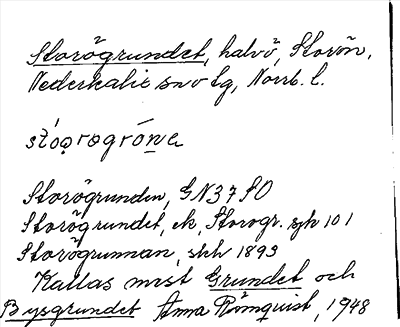 Storögrundet, halvö, Storön,
Nederkalix snv tg, Norrb. l.
Storögrunden, GN37 SO
Storögrundet, ek, Storogr. sjk 101
Storögrunnan, skk 1893
Kallas mest Grundet och
Bysgrundet Anna Römquist, 1948